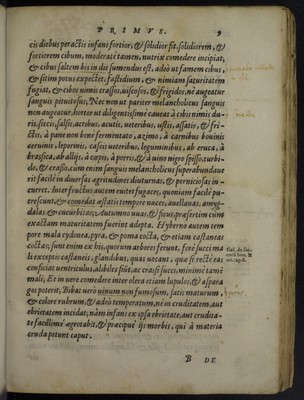 PRIMVS. 9
cis dibus peractis infans fortior, & solidior sit, solidiorem, &
fortiorem cibum, moderatè tamen, nutrix comedere incipiat,
& cibus saltem bis in die sumendus est, adeò ut famem cibus,
& sitim potus expectet. fastidium, & nimiam saturitatem
fugiat, & cibos nimis crassos, uiscosos, & frigidos, nè augeatur
sanguis pituitosus, Nec non ut pariter melancholicus sanguis
non augeatur, hortor ut diligentissimè caueat à cibis nimis du-
ris, siccis, salsis, acribus, acutis, ueteribus, ustis, assatis, & fri-
ctis, à pane non bene fermentato, azimo, à carnibus bouinis
ceruinis, leporinis, caseis ueteribus, leguminibus, ab eruca, à
brassica, ab allijs, à cæpis, à porris, & à uino nigro spisso, turbi-
do, & crasso, cum enim sanguis melancholicus superabundaue
rit facilè in diuersas ægritudines diuturnas, & perniciosas in-
curret. Inter fructus autem euitet fugaces, quoniam facilè pu-
trescunt, & comedat æstatis tempore nuces, auellanas, amyg-
dalas & cucurbitas, Autumno uuas, & ficus, præsertim cum
exactam maturitatem fuerint adepta. Hyberno autem tem
pore mala cydonea, pyra, & poma cocta, & etiam castaneas
coctas, sunt enim ex his, quorum arbores ferunt, ferè succi ma
li exceptis castaneis, glandibus, quas uocant, quæ si rectè eas
conficiat nutriculus, albibes fiūt, ac crassi succi, minimè tamē
mali, Et in uere comedere inter olera etiam lupulos, & aspara
gos poterit, Bibat uerò uinum non fumosum, satis maturum,
& colore rubrum, & adeò temperatum, nè in cruditatem, aut
ebrietatem incidat, nàm infans ex ipsa ebrietate, aut crudita-
te facillimè ægrotabit, & præcipuè ijs morbis, qui à materia
cruda petunt caput.
B DE